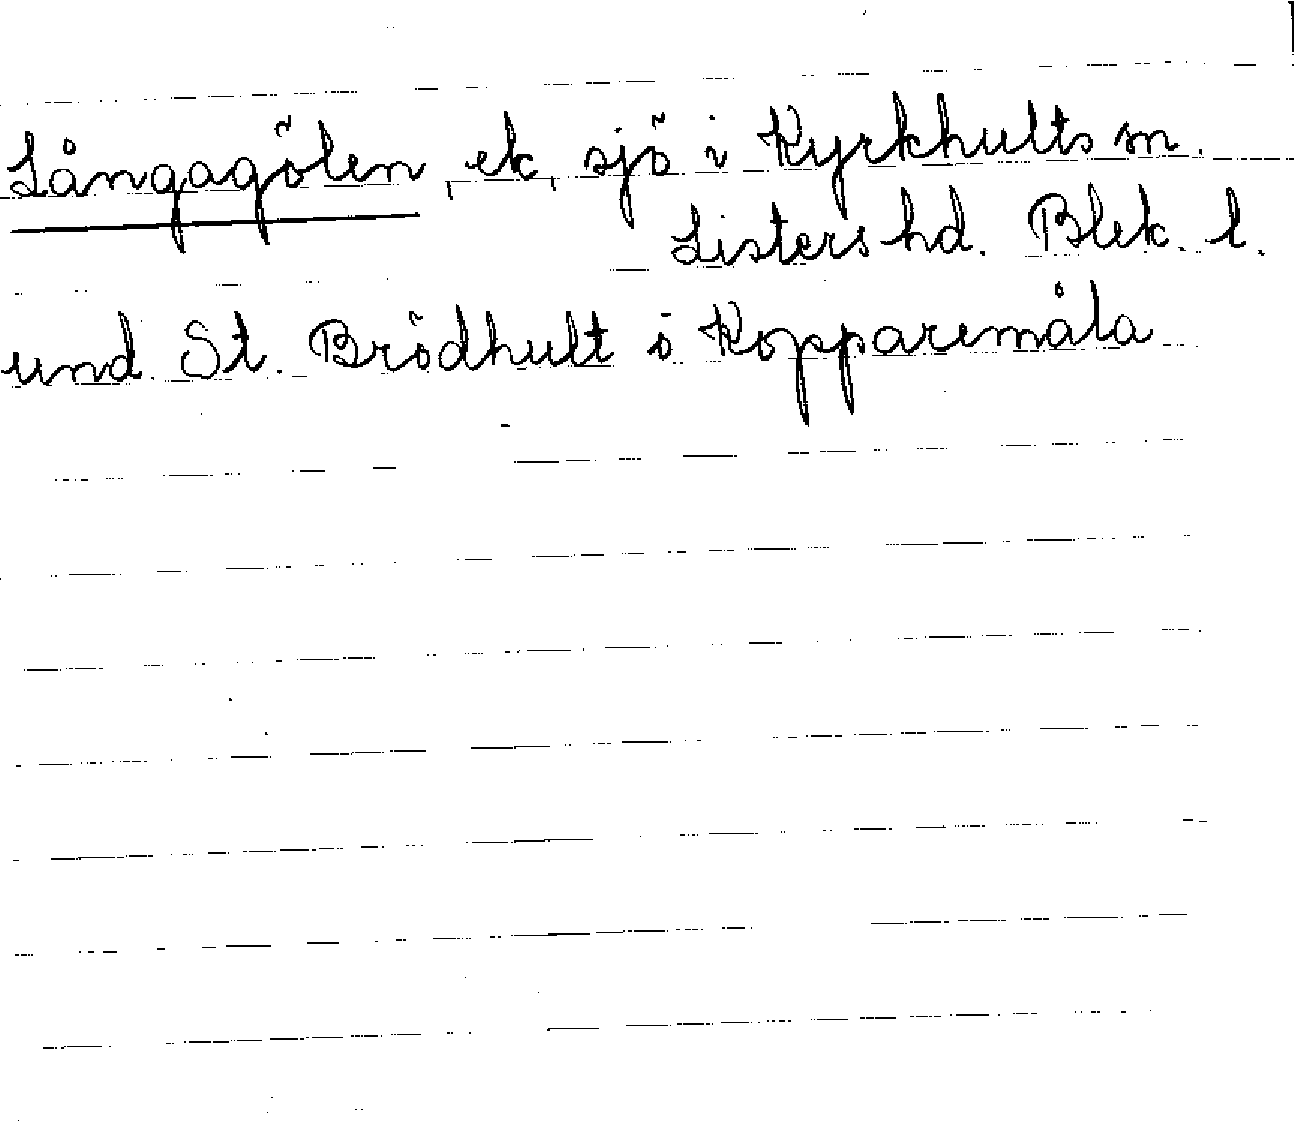 Långagölen, ek, sjö i Kyrkhults sn.
Listers hd. Blek. l.
und. St. Brödhult o Kopparemåla